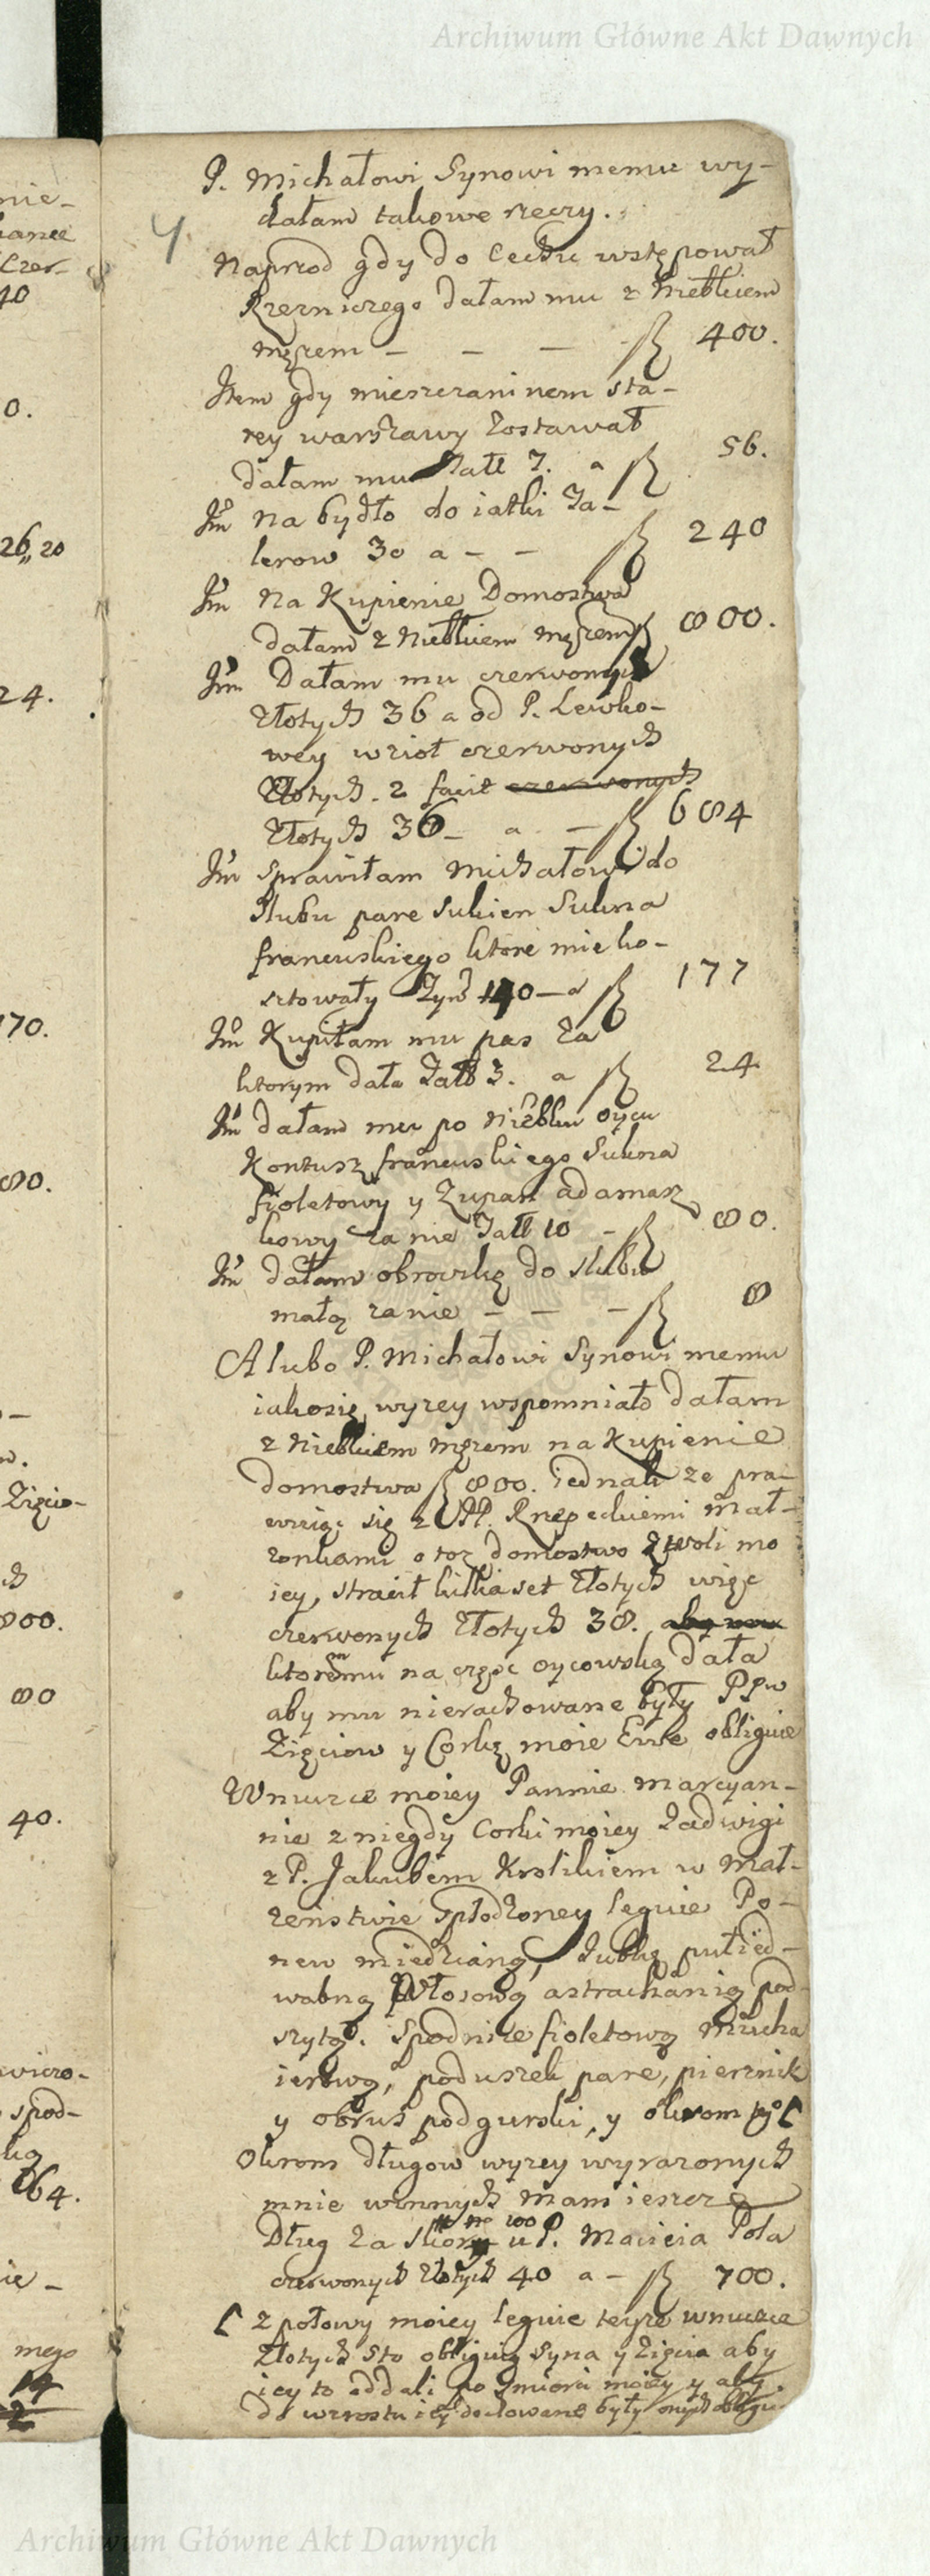 Archiwum Główne Akt Dawnych
P. Michałowi Synowi memu wy-
dałam takowe rzeczy.
4
Naprzod gdy do Cechu wstępował
Rzezniczego dałam mu z Nieb
mężem — — — 400.
Item gdy mieszczaninem sta-
rey warszawy zostawał
dałam mu Tall 7. a 56.
Itm na bydło do iatki Ta-
lerow 30 a — — 240
Itm Na Kupienie Domostwa
dałam z mężem 800.
Itm Dałam mu czerwonych
złotych 36 a od P. Lewko-
wey wzioł czerwonych
złotych 2 facit czerwonych
złotych 36 — a — 684
Itm sprawiłam Michałowi do
slubu pare sukien sukna
francuskiego ktore mie ko-
sztowały — a 177
Itm Kupiłam mu pas za
ktorym dała Tall 3. a 24
Itm dałam mu po oycu
Kontusz francuskiego sukna
fioletowy y Zupan adamasz
kowy za nie Tall 10 — 80.
Itm dałam obrączkę do slubu
małą za nie — — — 8
A lubo P. Michałowi Synowi memu
iakosię wyzey wspomniało dałam
z mężem na Kupienie
domostwa 800. iednak ze pra-
wuiąc się z PP. Rzepeckiemi mał-
zonkami o toz domostwo z woli mo
iey, stracił kilkaset złotych więc
czerwonych złotych 38.
ktorem mu na częsc oycowską dała
aby mu nierachowane były PPw
Zięciow y Corkę moie Ewe obliguie
Wnuczce moiey Pannie Marcyan-
nie z niegdy Corki moiey Jadwigi
z P. Jakubem Krolikiem w Mał-
zenstwie spłodzoney leguie Po-
new miedzianą, Jubkę pułied-
wabną Włosową astrachanią pod-
szytą. Spodnice fioletową mucha
ierową, poduszek pare, pierznik
y obrus podgurski, y
Okrom długow wyzey wyrazonych
mnie winnych mam ieszcze
no 100
Dług za u P. Macieia Pola
czerwonych złotych 40 a — 700.
z połowy moiey leguie teyze wnuczce
złotych sto obliguię syna y zięcia aby
iey to oddali po smierci moiey y aby
do wzrostu iey dochowane były
Archiwum Główne Akt Dawnych